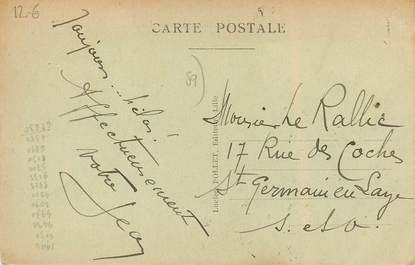 12-6
CARTE POSTALE
89
Toujours... hélas!
Affectueusement
votre
Jean
Lucien POLLET, Editeur, Lille
Monsieur Le Rallic
17 Rue des Coches
St Germain en Laye
S. et O.